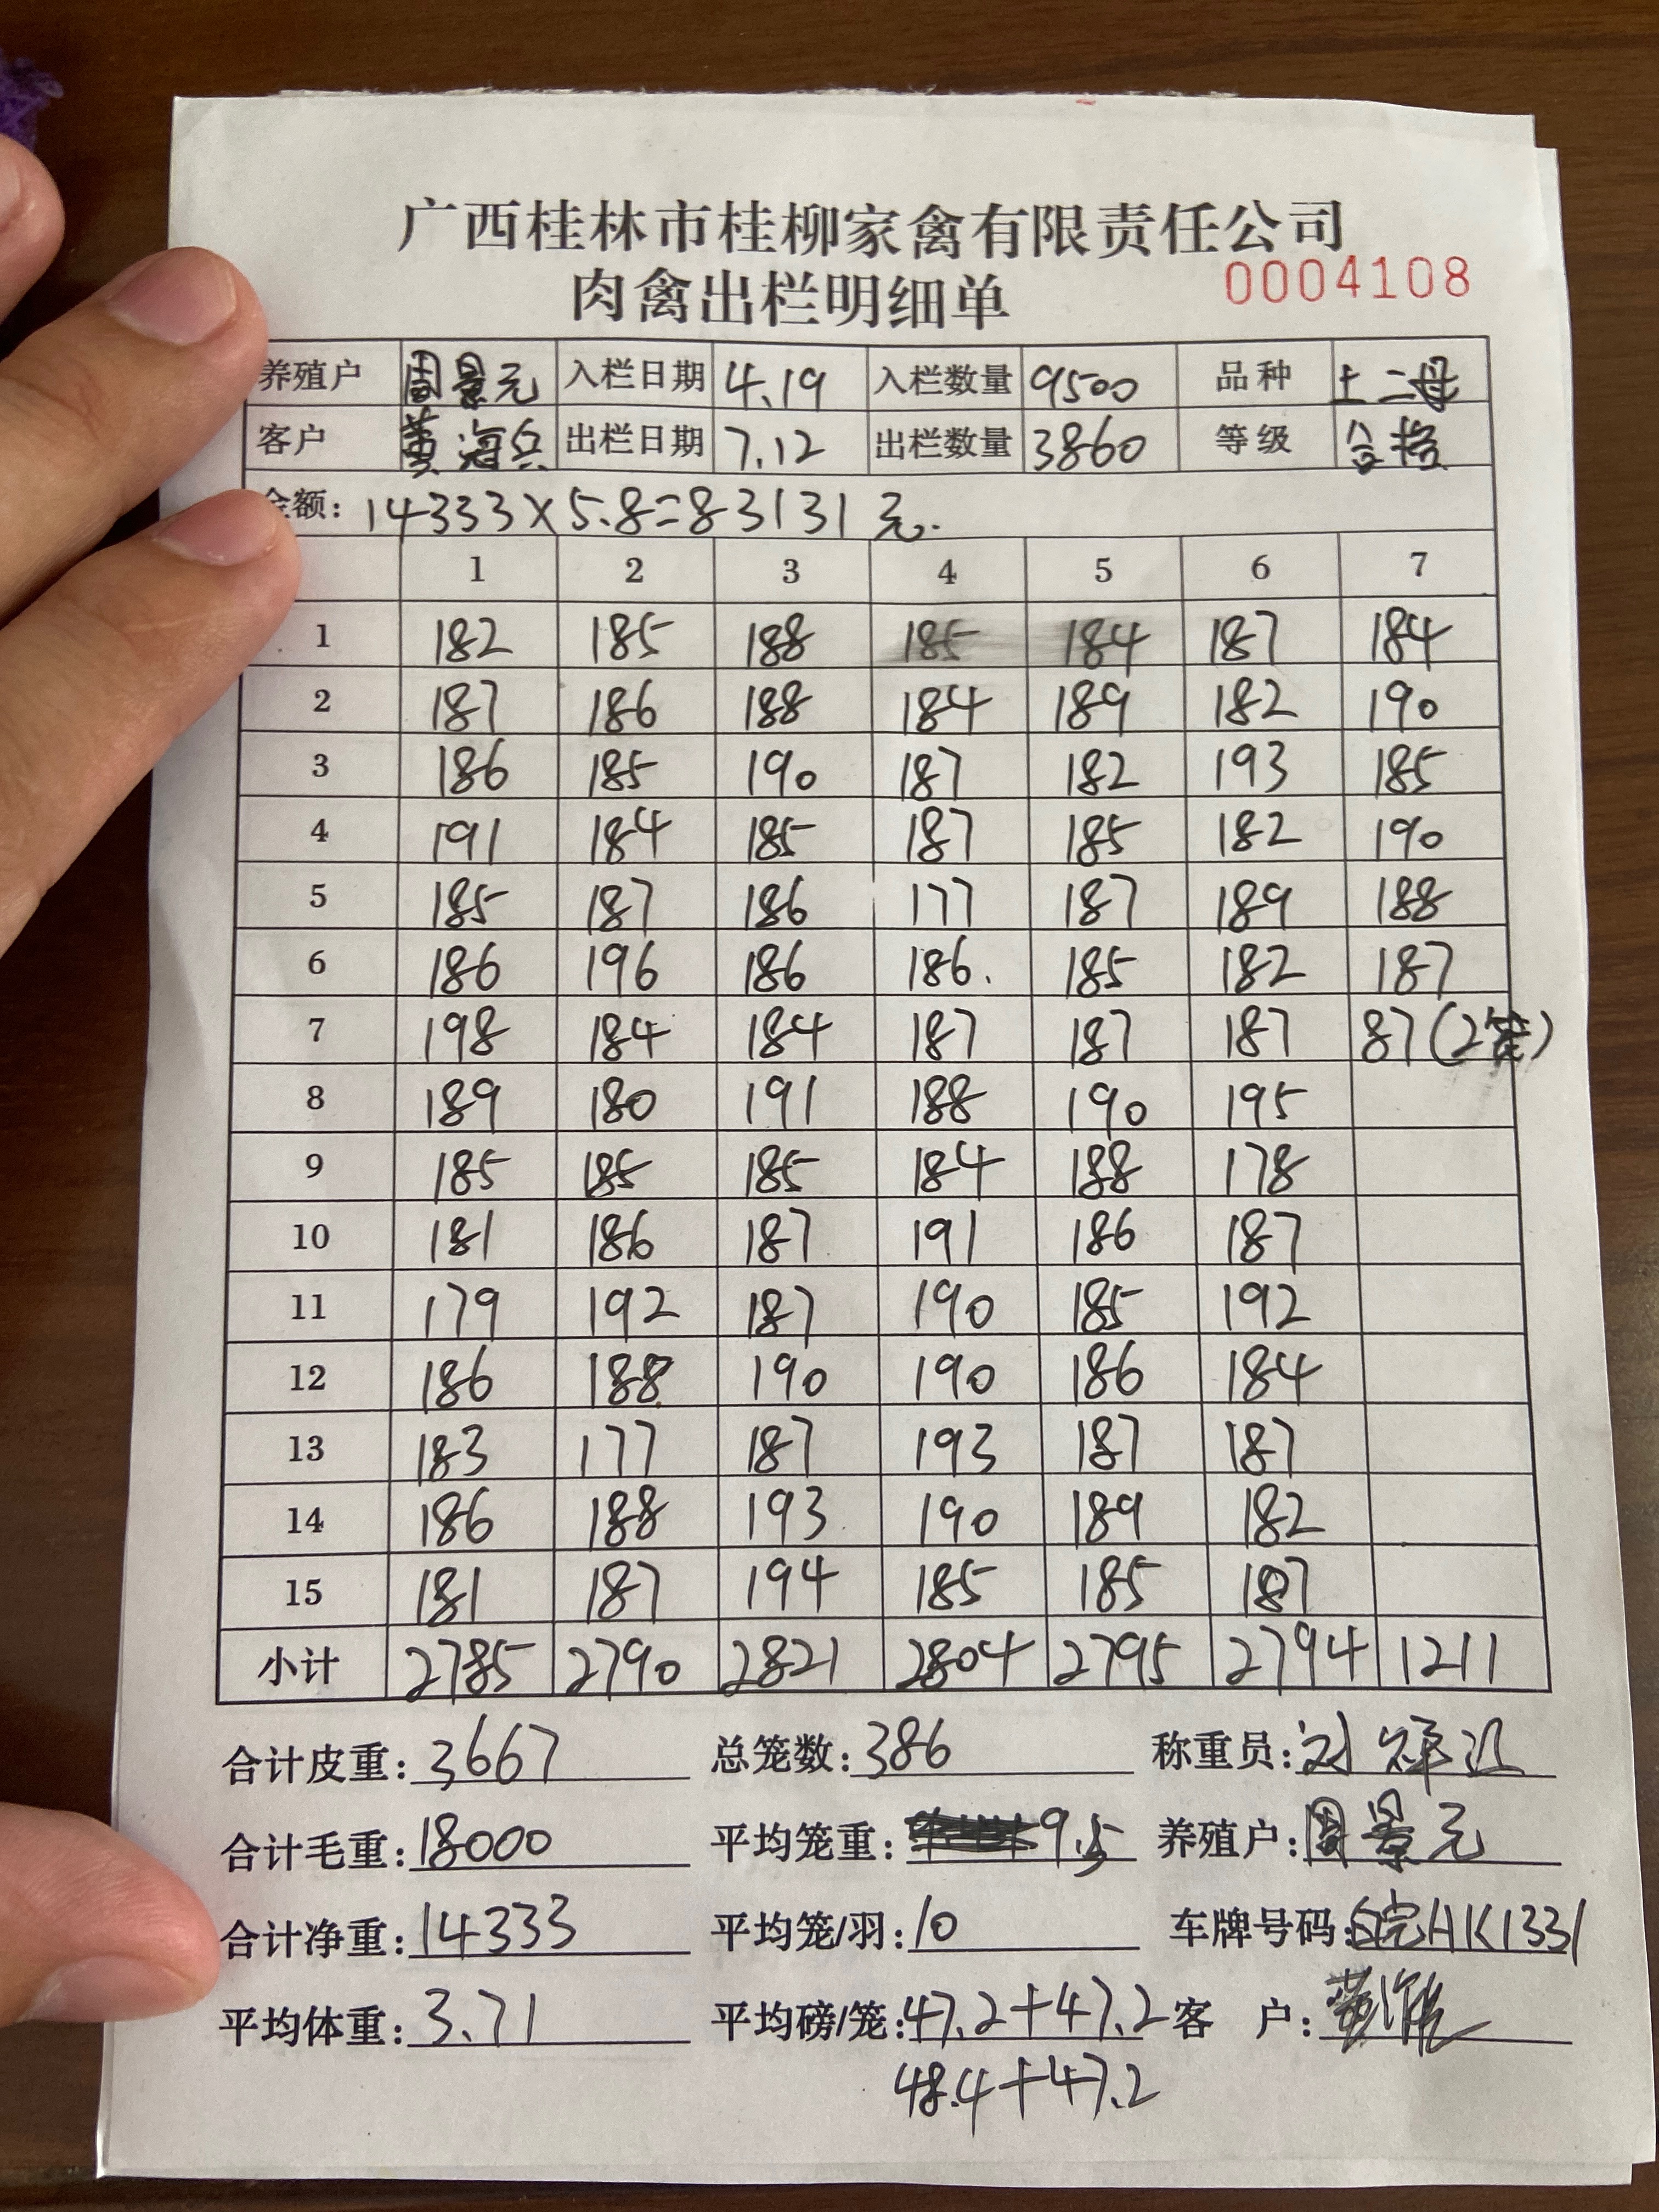 广西桂林市桂柳家禽有限责任公司
肉禽出栏明细单 0004108
养殖户 周景元 入栏日期 4.19 入栏数量 9500 品种 土二母
客户 黄海兵 出栏日期 7.12 出栏数量 3860 等级 合格
金额: 14333×5.8=83131元.
1 2 3 4 5 6 7
1 182 185 188 185 184 187 184
2 187 186 188 184 189 182 190
3 186 185 190 187 182 193 185
4 191 184 185 187 185 182 190
5 185 187 186 177 187 189 188
6 186 196 186 186. 185 182 187
7 198 184 184 187 187 187 87(2笼)
8 189 180 191 188 190 195
9 185 185 185 184 188 178
10 181 186 187 191 186 187
11 179 192 187 190 185 192
12 186 188 190 190 186 184
13 183 177 187 193 187 187
14 186 188 193 190 189 182
15 181 187 194 185 185 187
小计 2785 2790 2821 2804 2795 2794 1211
合计皮重: 3667 总笼数: 386 称重员: 刘
合计毛重: 18000 平均笼重: 9.5 养殖户: 周景元
合计净重: 14333 平均笼/羽: 10 车牌号码: 皖HK1331
平均体重: 3.71 平均磅/笼: 47.2+47.2 客 户:
48.4+47.2